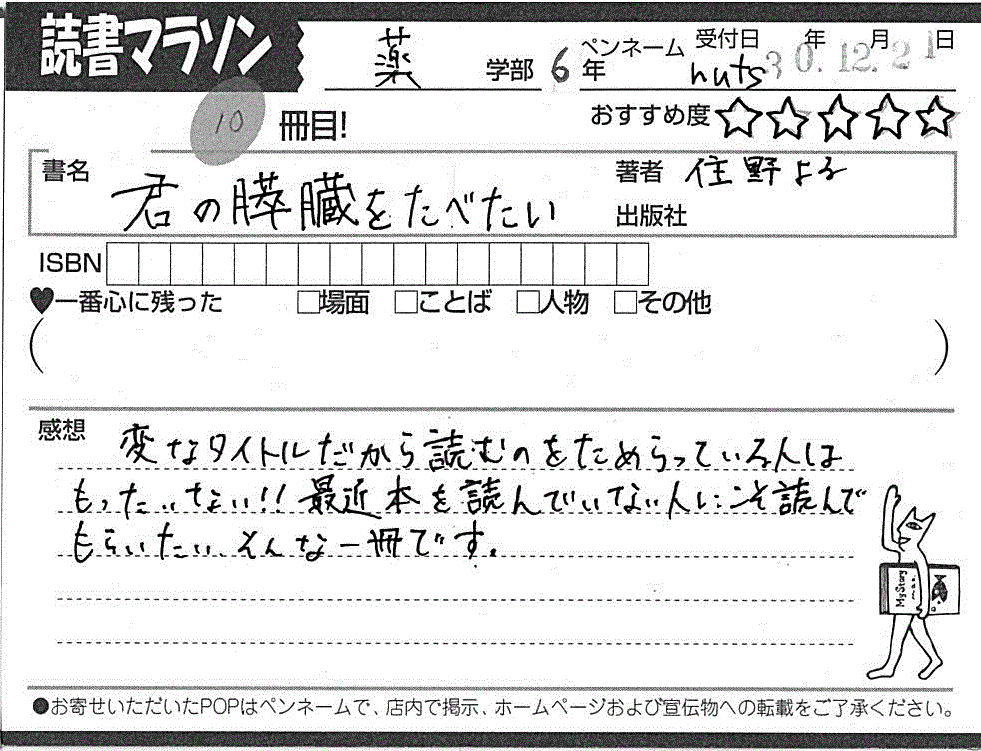 読書マラソン
薬 学部 6年 ペンネーム nuts 受付日 30年12月21日
10 冊目!
おすすめ度 ☆☆☆☆☆
書名 君の膵臓をたべたい
著者 住野よる
出版社
ISBN
♥一番心に残った □場面 □ことば □人物 □その他
( )
感想
変なタイトルだから読むのをためらっている人は
もったいない!! 最近本を読んでいない人にこそ読んで
もらいたい、そんな一冊です。
My Story
●お寄せいただいたPOPはペンネームで、店内で掲示、ホームページおよび宣伝物への転載をご了承ください。